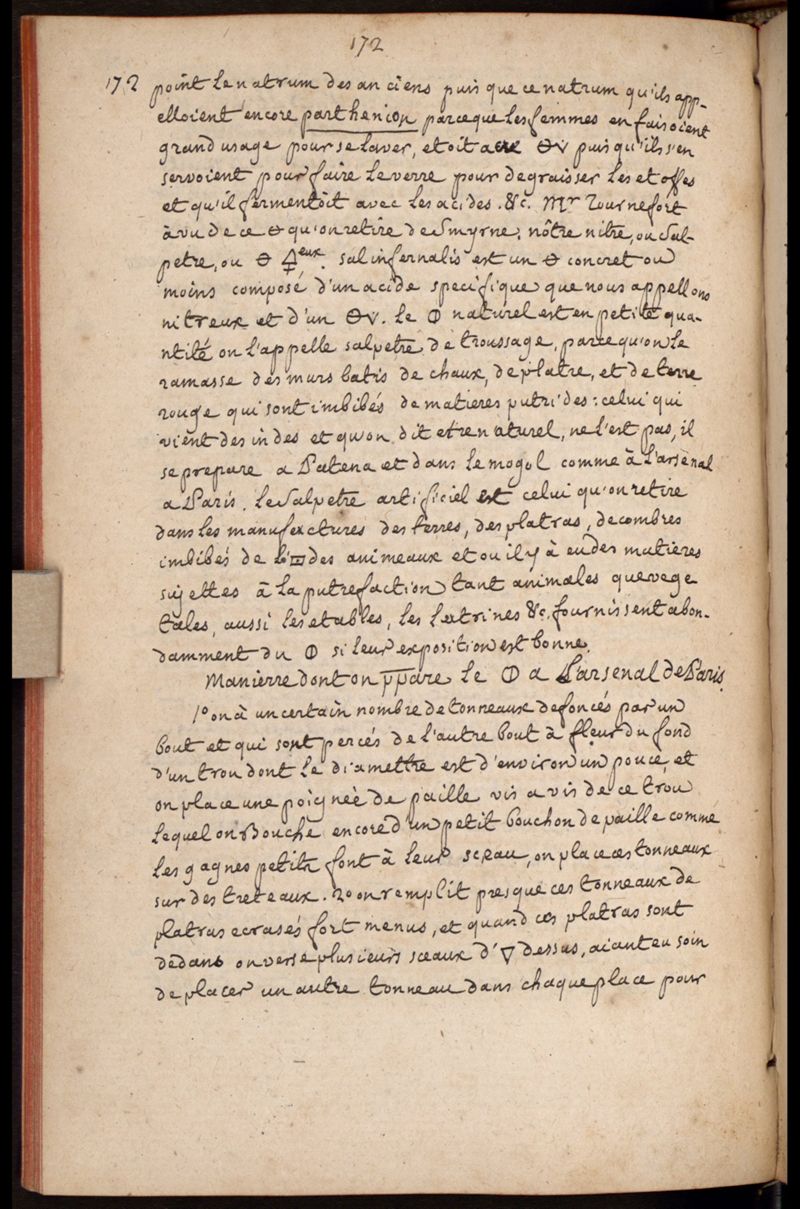 172
172 point le natrum des anciens puis que ce natrum qu'ils app-
elloient encore parthenion parceque les femmes en faisoient
grand usage pour se laver, etoit a 🜔v puis qu'ils s'en
servoient pour faire le verre pour degraisser les etoffes
et qu'il fermentoit avec les acides .&c. Mr Tournefort
à vu de ce 🜔 qu'on retire de Smyrne; nôtre nitre, ou Sal-
petre, ou 🜔 🜍eux. sal infernalis est un 🜔 concret ou
moins composé d'un acide specifique que nous appellons
nitreux et d'un 🜔v. le 🜕 naturel est en petite qua-
ntité on l'appelle salpetre de troussage, parcequ'on le
ramasse des murs batis de chaux, de platre, et de terre
rouge qui sont imbibés de matieres putrides: celui qui
vient des indes et qu'on dit etre naturel, ne l'est pas, il
se prepare a Patena et dans le mogol comme à l'arsenal
a Paris. le Salpetre artificiel est celui qu'on retire
dans les manufactures des terres, des platras, decombres
imbibés de l'🝕 des animeaux et ou il y à eu des matieres
sujettes à la putrefaction tant animales que vege
tales, aussi les etables, les latrines &c. fournissent abon-
damment du 🜕 si leur exposition est bonne.
Manierre dont on ppare le 🜕 a L'arsenal de Paris.
1o on à un certain nombre de tonneaux defoncés par un
bout et qui sont percés de l'autre bout à fleur du fond
d'un trou dont le diamettre est d'environ un pouce, et
on place une poignée de paille vis a vis de ce trou
lequel on Bouche encore d'un petit bouchon de paille comme
les gagnes petits font à leur sceau, on place ces tonneaux
sur des treteaux. 2o on remplit presque ces tonneaux de
platras ecrasés fort menus, et quand ces platras sont
dedans on verse plusieurs sceaux d'🜄 dessus, aiant eu soin
de placer un autre tonneau dans chaque place pour